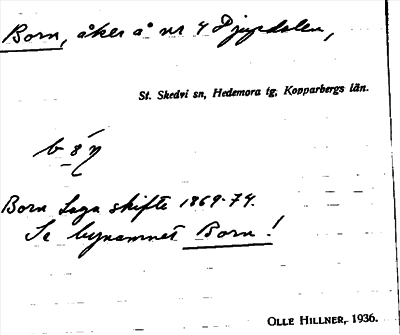 Born, åker å nr 4 Djupdalen,
St. Skedvi sn, Hedemora tg, Kopparbergs län.
Born Laga skifte 1869-74.
Se bynamnet Born!
OLLE HILLNER, 1936.